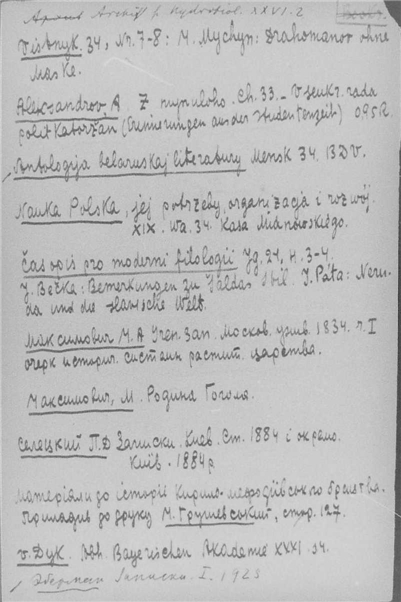 Archiv f. Hydrobiol. XXVI.2
Visnyk. 34, Nr. 7-8: M. Mychyn: Drahomanov ohne
Maske.
Aleksandrov, A Z mynuloho. Ch. 33. – Vseukr. rada
politkatoržan (Erinnerungen aus der Studentenzeit) 095R
Antologija belaruskaj literatury Mensk 34. 13DV.
Nauka Polska, jej potrzeby, organizacja i rozwój.
XIX. Wa. 34. Kasa Mianowskiego.
Časopis pro moderní filologii Jg. 21, H. 3-4.
J. Bečka: Bemerkungen zu J. Páta: Neru-
da und die slavische Welt.
Максимович М. А Учен. зап. Москов. унив. 1834. ч. I
очерк историч. систапи растит. царства.
Максимович, М. Родина Гоголя.
Селецкий П.Д Записки. Киев. Ст. 1884 і окремо.
Київ. 1884р
Матеріяли до історії Кирило-мефодіївського братства.
Приладив до друку М. Грушевський, стор. 127.
v. Dyk. Abh. Bayerischen Akademie XXXI. 34.
Записки. I. 1923